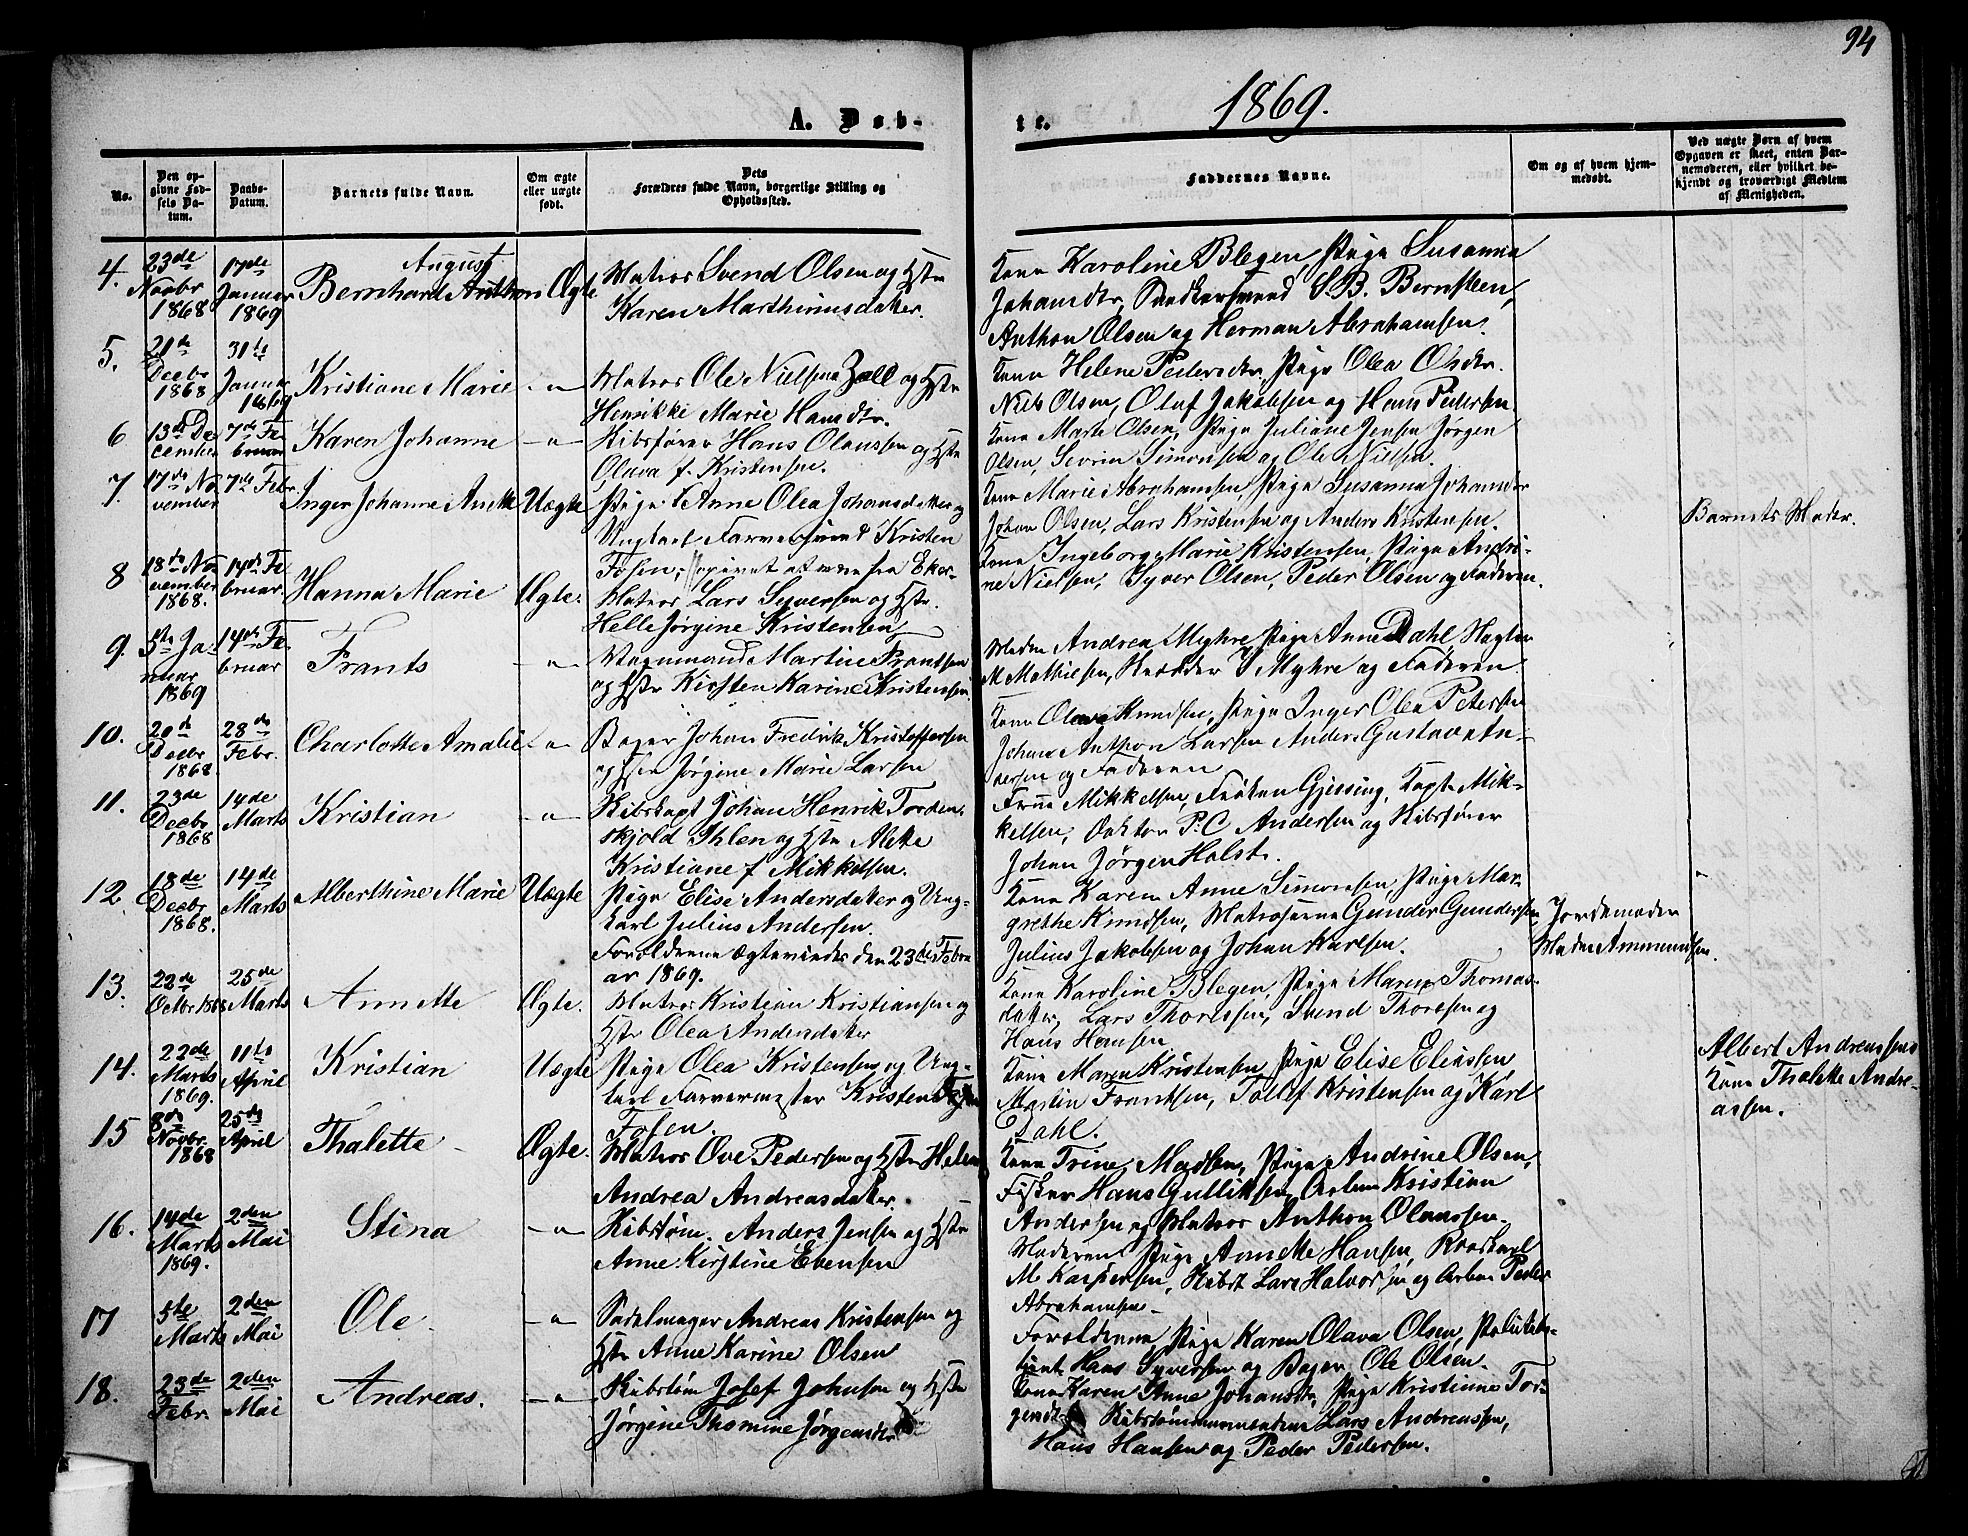 94
1869.
A. Døb-
te.
No.
Den op-
givne Fød-
sels Da-
tum.
Daabs-
Datum.
Barnets fulde Navn.
Om ægte
eller uægte
født.
Dets
Forældres fulde Navn, borgerlige Stilling og
Opholdssted.
Faddernes Navne.
Om og af hvem hjem-
medøbt.
Ved uægte Børn af hvem
Opgaven er skeet, enten Bar-
nemoderen, eller hvilket be-
kjendt og troværdigt Medlem
af Menigheden.
4.
23de
Novbr
1868
17de
Januar
1869
August
Bernhard Anthon
Ægte
Matros Svend Olsen og Hstr
Karen Marthinusdatter.
Kone Karoline Blegen, Pige Susanna
Johansdtr, S. B. Bernsteen,
Anthon Olsen og Herman Abrahamsen.
5.
21de
Decbr
1868
31te
Januar
1869
Kristiane Marie
-"-
Matros Ole Nielsen Zoll og Hstr
Henrikke Marie Hansdtr.
Kone Helene Pedersdtr, Pige Olea Olsdtr.
Niels Olsen, Oluf Jakobsen og Hans Pedersen.
6
13de De
cember
7de Fe
bruar
Karen Johanne
-"-
Skibsfører Hans Olaussen og Hstr
Olava f. Kristensen.
Kone Marte Olsen, Pige Juliane Jensen Jørgen
Olsen, Severin Simonsen og Ole Nielsen.
7.
17de No
vember
7de Febr
Inger Johanne Anette
Uægte
Pige Anne Olea Johansdatter og
Ungkarl Farversvend Kristen
Fosen; opgivet at være fra Eker-
Kone Marie Abrahamsen, Pige Susanna Johansdtr
Johan Olsen, Lars Kristensen og Anders Kristensen.
Barnets Moder.
8
18de No
vember
1868.
14de Fe
bruar.
Hanna Marie
Ægte.
Matros Lars Syversen og Hstr.
Helle Jørgine Kristensen
Kone Ingeborg Marie Kristensen, Pige Andri-
ne Nielsen, Syver Olsen, Peder Olsen og Faderen.
9.
5te Ja-
nuar
1869
14de Fe
bruar
Frants
-"-
Vognmand Martin Frantsen
og Hstr Kirsten Karine Kristensen
Madm Andrea Myhre, Pige Anne Dahl,
M Mathiesen, Myhre og Faderen
10.
20d
Decbr
1868.
28de
Febr.
Charlotte Amalie
-"-
Bager Johan Fredrik Kristoffersen
og Hstr Jørgine Marie Larsen
Kone Olava Knudsen, Pige Inger Olea Petersen
Johan Anthon Larsen Anders Gustav An-
dersen og Faderen
11.
23de
Decbr
1868
14de
Marts
Kristian
-"-
Skibskapt Johan Henrik Torden-
skjold Ihlen og Hstr Alette
Kristiane f Mikkelsen.
Frue Mikkelsen, Frøken Gjessing, Kapt Mik-
kelsen, Doktor P. C. Andersen og Skibsfører
Johan Jørgen Holst.
12
18de
Decbr
1868.
14de
Marts
Alberthine Marie
Uægte
Pige Elise Andersdatter og Ung-
karl Julius Andersen.
Forældrene Ægteviedes den 23de Febru
ar 1869.
Kone Karen Anne Simonsen, Pige Mar-
grethe Knudsen, Matroserne Gunder Gundersen
Julius Jakobsen og Johan Karlsen.
Jordemoder
Madm Ammundsen.
13.
22de
Octbr 1868
25de
Marts
Annette
Ægte.
Matros Kristian Kristiansen og
Hstr Olea Andersdatter
Kone Karoline Blegen, Pige Maren Thomas-
datter, Lars Thoressen, Svend Thoresen og
Hans Hansen
14.
22de
Marts
1869.
11te
April
Kristian
Uægte
Pige Olea Kristensen og Ung-
karl Farvermester Kristen
Fosen.
Kone Maren Kristensen, Pige Elise Eliassen
Martin Frantsen, Tollef Kristensen og Karl
Dahl.
Albert Andreassens
Kone Thalette Andre-
assen.
15
8de
Novbr.
1868
25de
April
Thalette
Ægte.
Matros Ove Pedersen og Hstr Helene
Andrea Andreasdatter.
Kone Trine Madsen, Pige Andrine Olsen,
Fisker Hans Gulliksen, Arbm Kristian
Andersen og Matros Anthon Olaussen.
16.
14de
Marts
1869.
2den
Mai
Stina
-"-
Skibstøm. Anders Jensen og Hstr
Anne Kirstine Evensen
Moderen, Pige Annette Hansen,
M Kaspersen, Skibst Lars Halvorsen og Arbm Peder
Abrahamsen.
17
5te
Marts
2den
Mai
Ole
-"-
Sadelmager Andreas Kristensen og
Hstr Anne Karine Olsen
Forældrene, Pige Karen Olava Olsen, Politibe-
tjent Hans Syversen og Bager Ole Olsen.
18.
23de
Febr.
2den
Mai
Andreas.
-"-
Skibstøm Josef Johnsen og Hstr
Jørgine Thomine Jørgensdtr
Kone Karen Anne Johansdtr, Pige Kristianne Tor-
gersdtr, Skibstømmermændene Lars Andreassen,
Hans Hansen og Peder Pedersen.